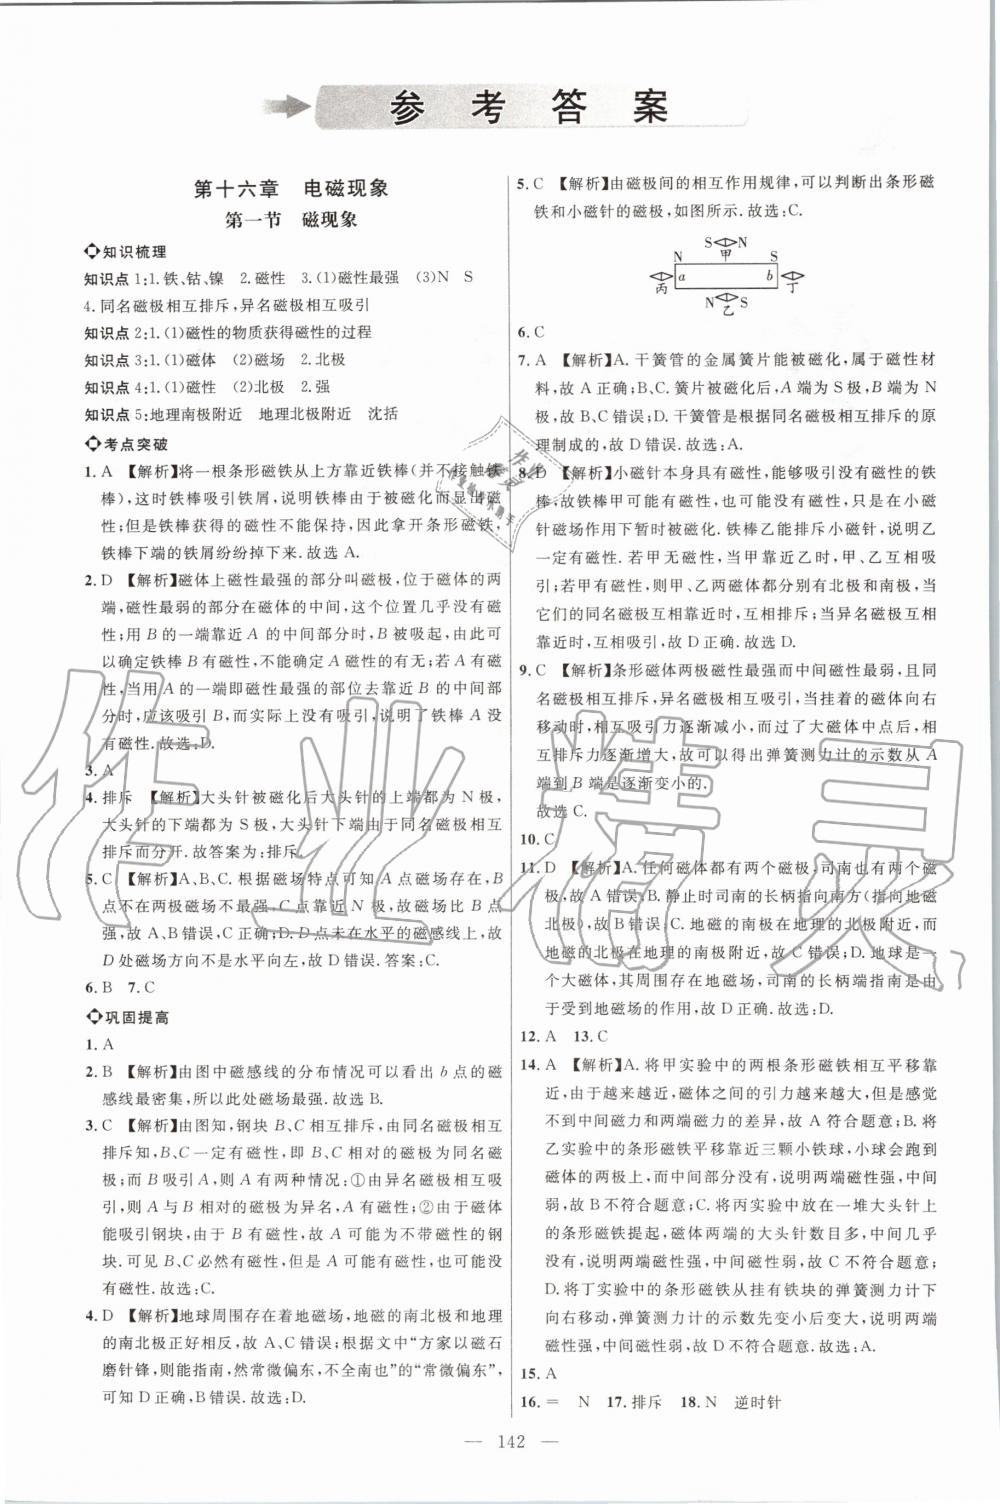 参考答案
第十六章　电磁现象
第一节　磁现象
知识梳理
知识点 1:1. 铁、钴、镍　2. 磁性　3. (1)磁性最强　(3)N　S
4. 同名磁极相互排斥,异名磁极相互吸引
知识点 2:1. (1)磁性的物质获得磁性的过程
知识点 3:1. (1)磁体　(2)磁场　2. 北极
知识点 4:1. (1)磁性　(2)北极　2. 强
知识点 5:地理南极附近　地理北极附近　沈括
考点突破
1. A　【解析】将一根条形磁铁从上方靠近铁棒(并不接触铁
棒),这时铁棒吸引铁屑,说明铁棒由于被磁化而显出磁
性;但是铁棒获得的磁性不能保持,因此拿开条形磁铁,
铁棒下端的铁屑纷纷掉下来. 故选 A.
2. D　【解析】磁体上磁性最强的部分叫磁极,位于磁体的两
端,磁性最弱的部分在磁体的中间,这个位置几乎没有磁
性;用 B 的一端靠近 A 的中间部分时,B 被吸起,由此可
以确定铁棒 B 有磁性,不能确定 A 磁性的有无;若 A 有磁
性,当用 A 的一端即磁性最强的部位去靠近 B 的中间部
分时,应该吸引 B,而实际上没有吸引,说明了铁棒 A 没
有磁性. 故选:D.
3. A
4. 排斥　【解析】大头针被磁化后大头针的上端都为 N 极,
大头针的下端都为 S 极,大头针下端由于同名磁极相互
排斥而分开. 故答案为:排斥.
5. C　【解析】A、B、C. 根据磁场特点可知 A 点磁场存在,B
点不在两极磁场不最强,C 点靠近 N 极,磁场比 B 点
强,故 A、B 错误,C 正确;D. D 点未在水平的磁感线上,故
D 处磁场方向不是水平向左,故 D 错误. 答案:C.
6. B　7. C
巩固提高
1. A
2. B　【解析】由图中磁感线的分布情况可以看出 b 点的磁
感线最密集,所以此处磁场最强. 故选 B.
3. C　【解析】由图知,钢块 B、C 相互排斥,由同名磁极相互
排斥知,B、C 一定有磁性,即 B、C 相对的磁极为同名磁
极;而 B 吸引 A,A 有两种情况:①由异名磁极相互吸
引,则 A 与 B 相对的磁极为异名,A 有磁性;②由于磁体
能吸引钢块. 由于 B 有磁性,故 A 可能为不带磁性的钢
块. 可见 B、C 必然有磁性,但 A 可能有磁性,也可能没
有磁性. 故选:C.
4. D　【解析】地球周围存在着地磁场,地磁的南北极和地理
的南北极正好相反,故 A、C 错误;根据文中“方家以磁石
磨针锋,则能指南,然常微偏东,不全南也”的“常微偏东”,
可知 D 正确,B 错误. 故选:D.
5. C　【解析】由磁极间的相互作用规律,可以判断出条形磁
铁和小磁针的磁极,如图所示. 故选:C.
S N
甲
N S
丙 a b 丁
N S
乙
6. C
7. A　【解析】A. 干簧管的金属簧片能被磁化,属于磁性材
料,故 A 正确;B、C. 簧片被磁化后,A 端为 S 极,B 端为 N
极,故 B、C 错误;D. 干簧管是根据同名磁极相互排斥的原
理制成的,故 D 错误. 故选:A.
8. D　【解析】小磁针本身具有磁性,能够吸引没有磁性的铁
棒,故铁棒甲可能有磁性,也可能没有磁性,只是在小磁
针磁场作用下暂时被磁化. 铁棒乙能排斥小磁针,说明乙
一定有磁性. 若甲无磁性,当甲靠近乙时,甲、乙互相吸
引;若甲有磁性,则甲、乙两磁体都分别有北极和南极,当
它们的同名磁极互相靠近时,互相排斥;当异名磁极互相
靠近时,互相吸引,故 D 正确. 故选 D.
9. C　【解析】条形磁体两极磁性最强而中间磁性最弱,且同
名磁极相互排斥,异名磁极相互吸引,当挂着的磁体向右
移动时,相互吸引力逐渐减小,而过了大磁体中点后,相
互排斥力逐渐增大,故可以得出弹簧测力计的示数从 A
端到 B 端是逐渐变小的.
故选 C.
10. C
11. D　【解析】A. 任何磁体都有两个磁极,司南也有两个磁
极,故 A 错误;B. 静止时司南的长柄指向南方(指向地磁
北极),故 B 错误;C. 地磁的南极在地理的北极附近,而
地磁的北极在地理的南极附近,故 C 错误;D. 地球是一
个大磁体,其周围存在地磁场,司南的长柄端指南是由
于受到地磁场的作用,故 D 正确. 故选:D.
12. A　13. C
14. A　【解析】A. 将甲实验中的两根条形磁铁相互平移靠
近,由于越来越近,磁体之间的引力越来越大,但是感觉
不到中间磁力和两端磁力的差异,故 A 符合题意;B. 将
乙实验中的条形磁铁平移靠近三颗小铁球,小球会跑到
磁体的两极上,而中间部分没有,说明两端磁性强,中间
弱,故 B 不符合题意;C. 将丙实验中放在一堆大头针上
的条形磁铁提起,磁体两端的大头针数目多,中间几乎
没有,说明两端磁性强,中间磁性弱,故 C 不符合题意;
D. 将丁实验中的条形磁铁从挂有铁块的弹簧测力计下
向右移动,弹簧测力计的示数先变小后变大,说明两端
磁性强,中间磁性弱,故 D 不符合题意. 故选:A.
15. A
16. =　N　17. 排斥　18. N　逆时针
— 142 —
作业精灵